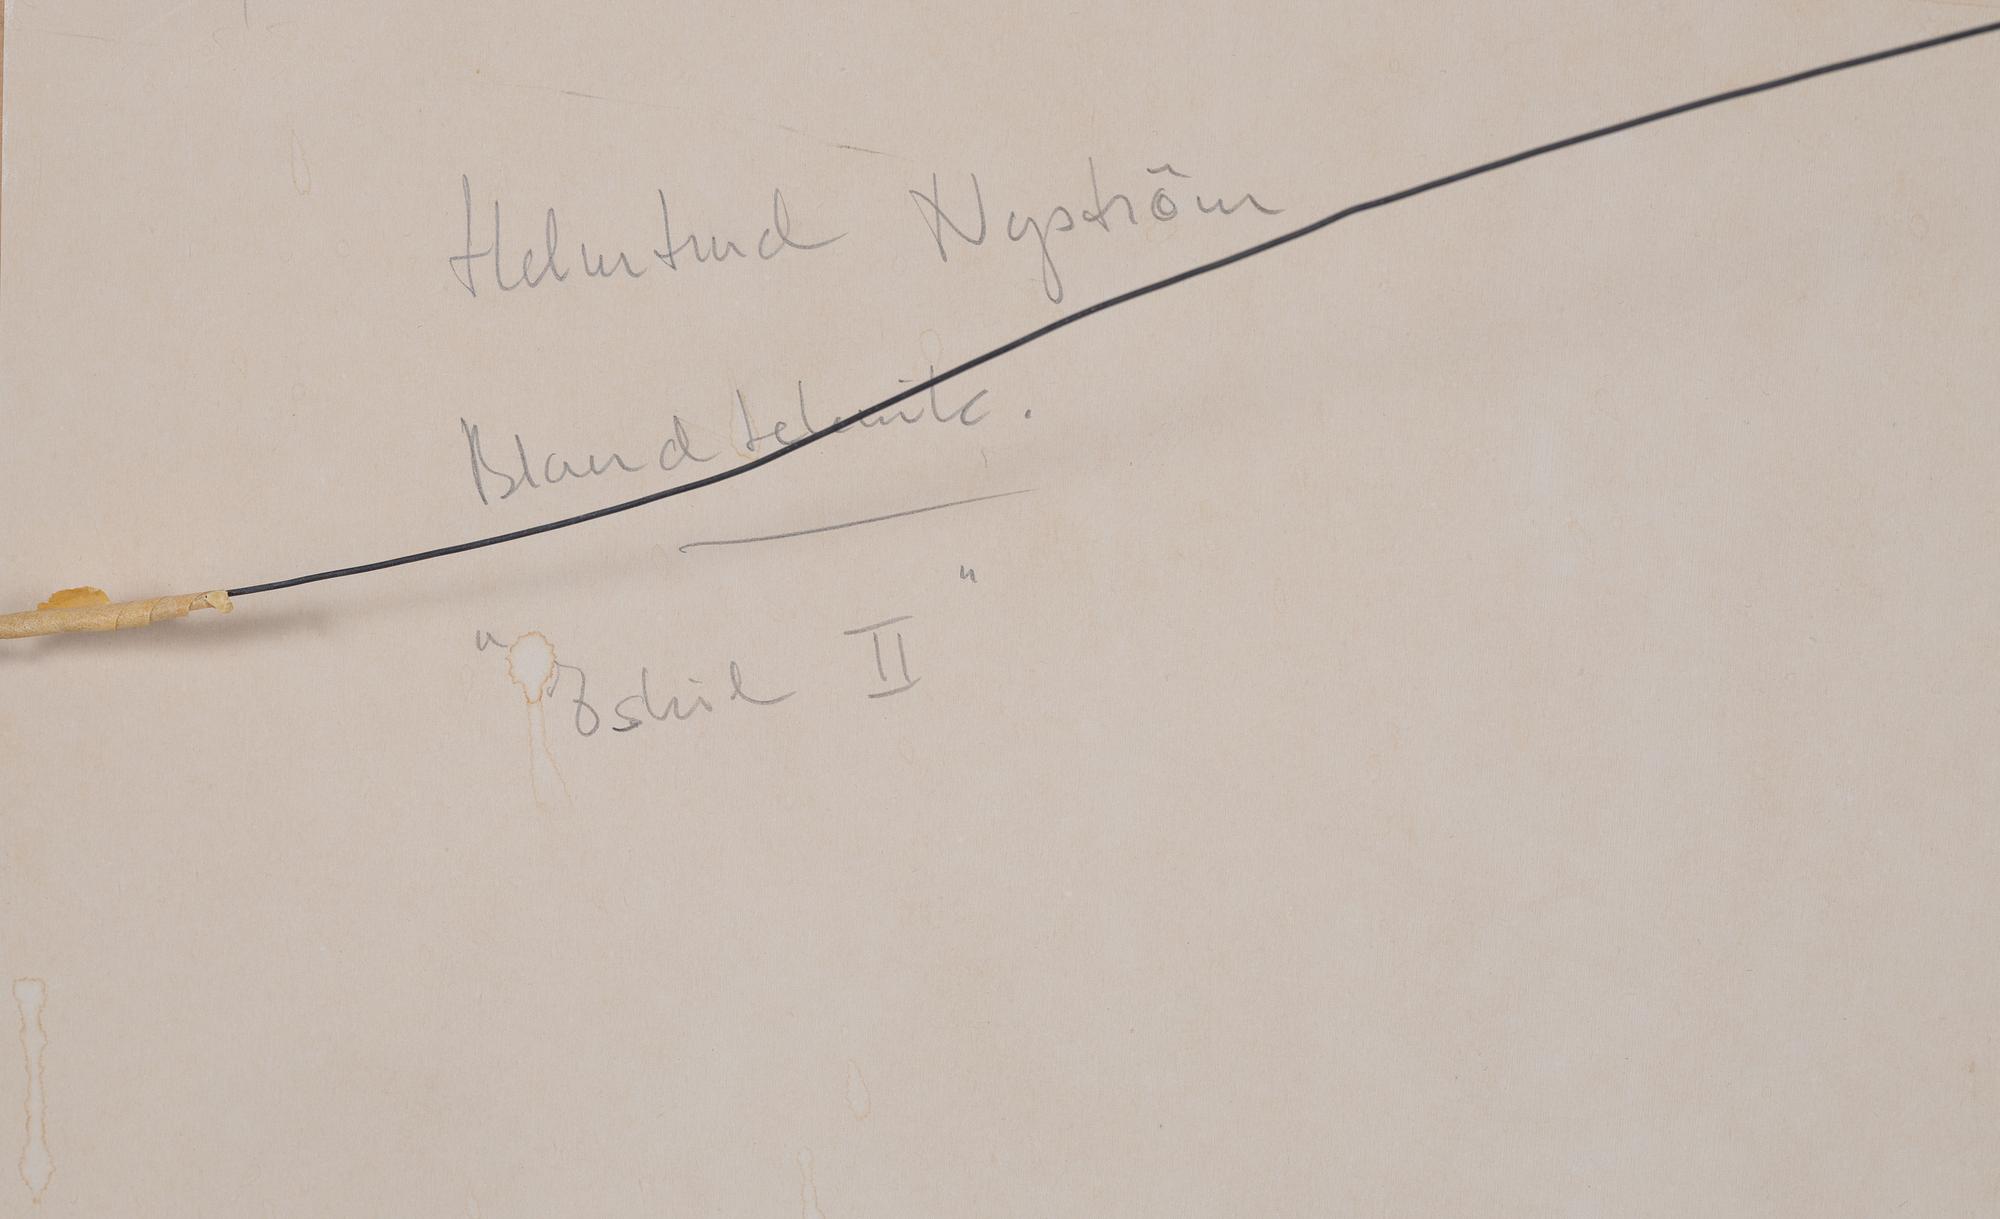 Helmtrud Nyström
Blandteknik.
"Eskil II"